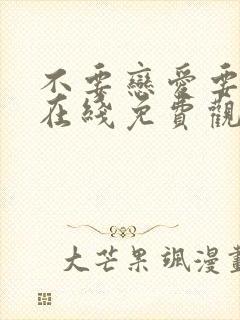 不要戀愛要
在綫免費觀
大芒果颯漫